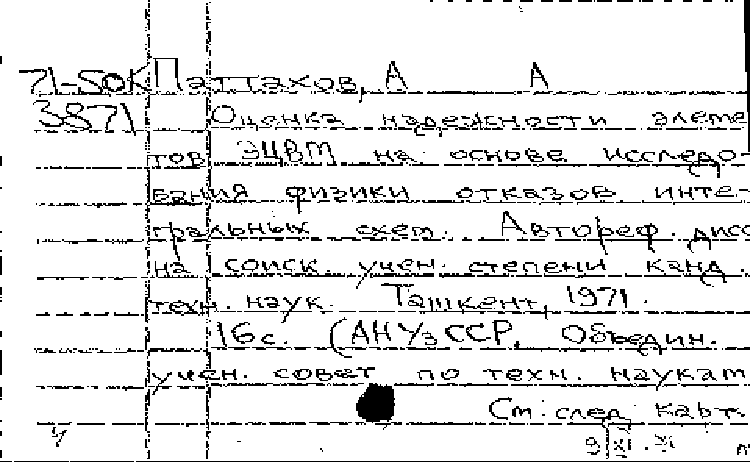 71-50К Паттахов, А А
3871 Оценка надежности элеме
тов ЭЦВМ на основе исследо-
вания физики отказов инте-
гральных схем. Автореф. дисс
на соиск. учен. степени канд.
техн. наук. Ташкент, 1971.
16с. (АН УзССР. Объедин.
учен. совет по техн. наукам
См. след. карт.
9 XI